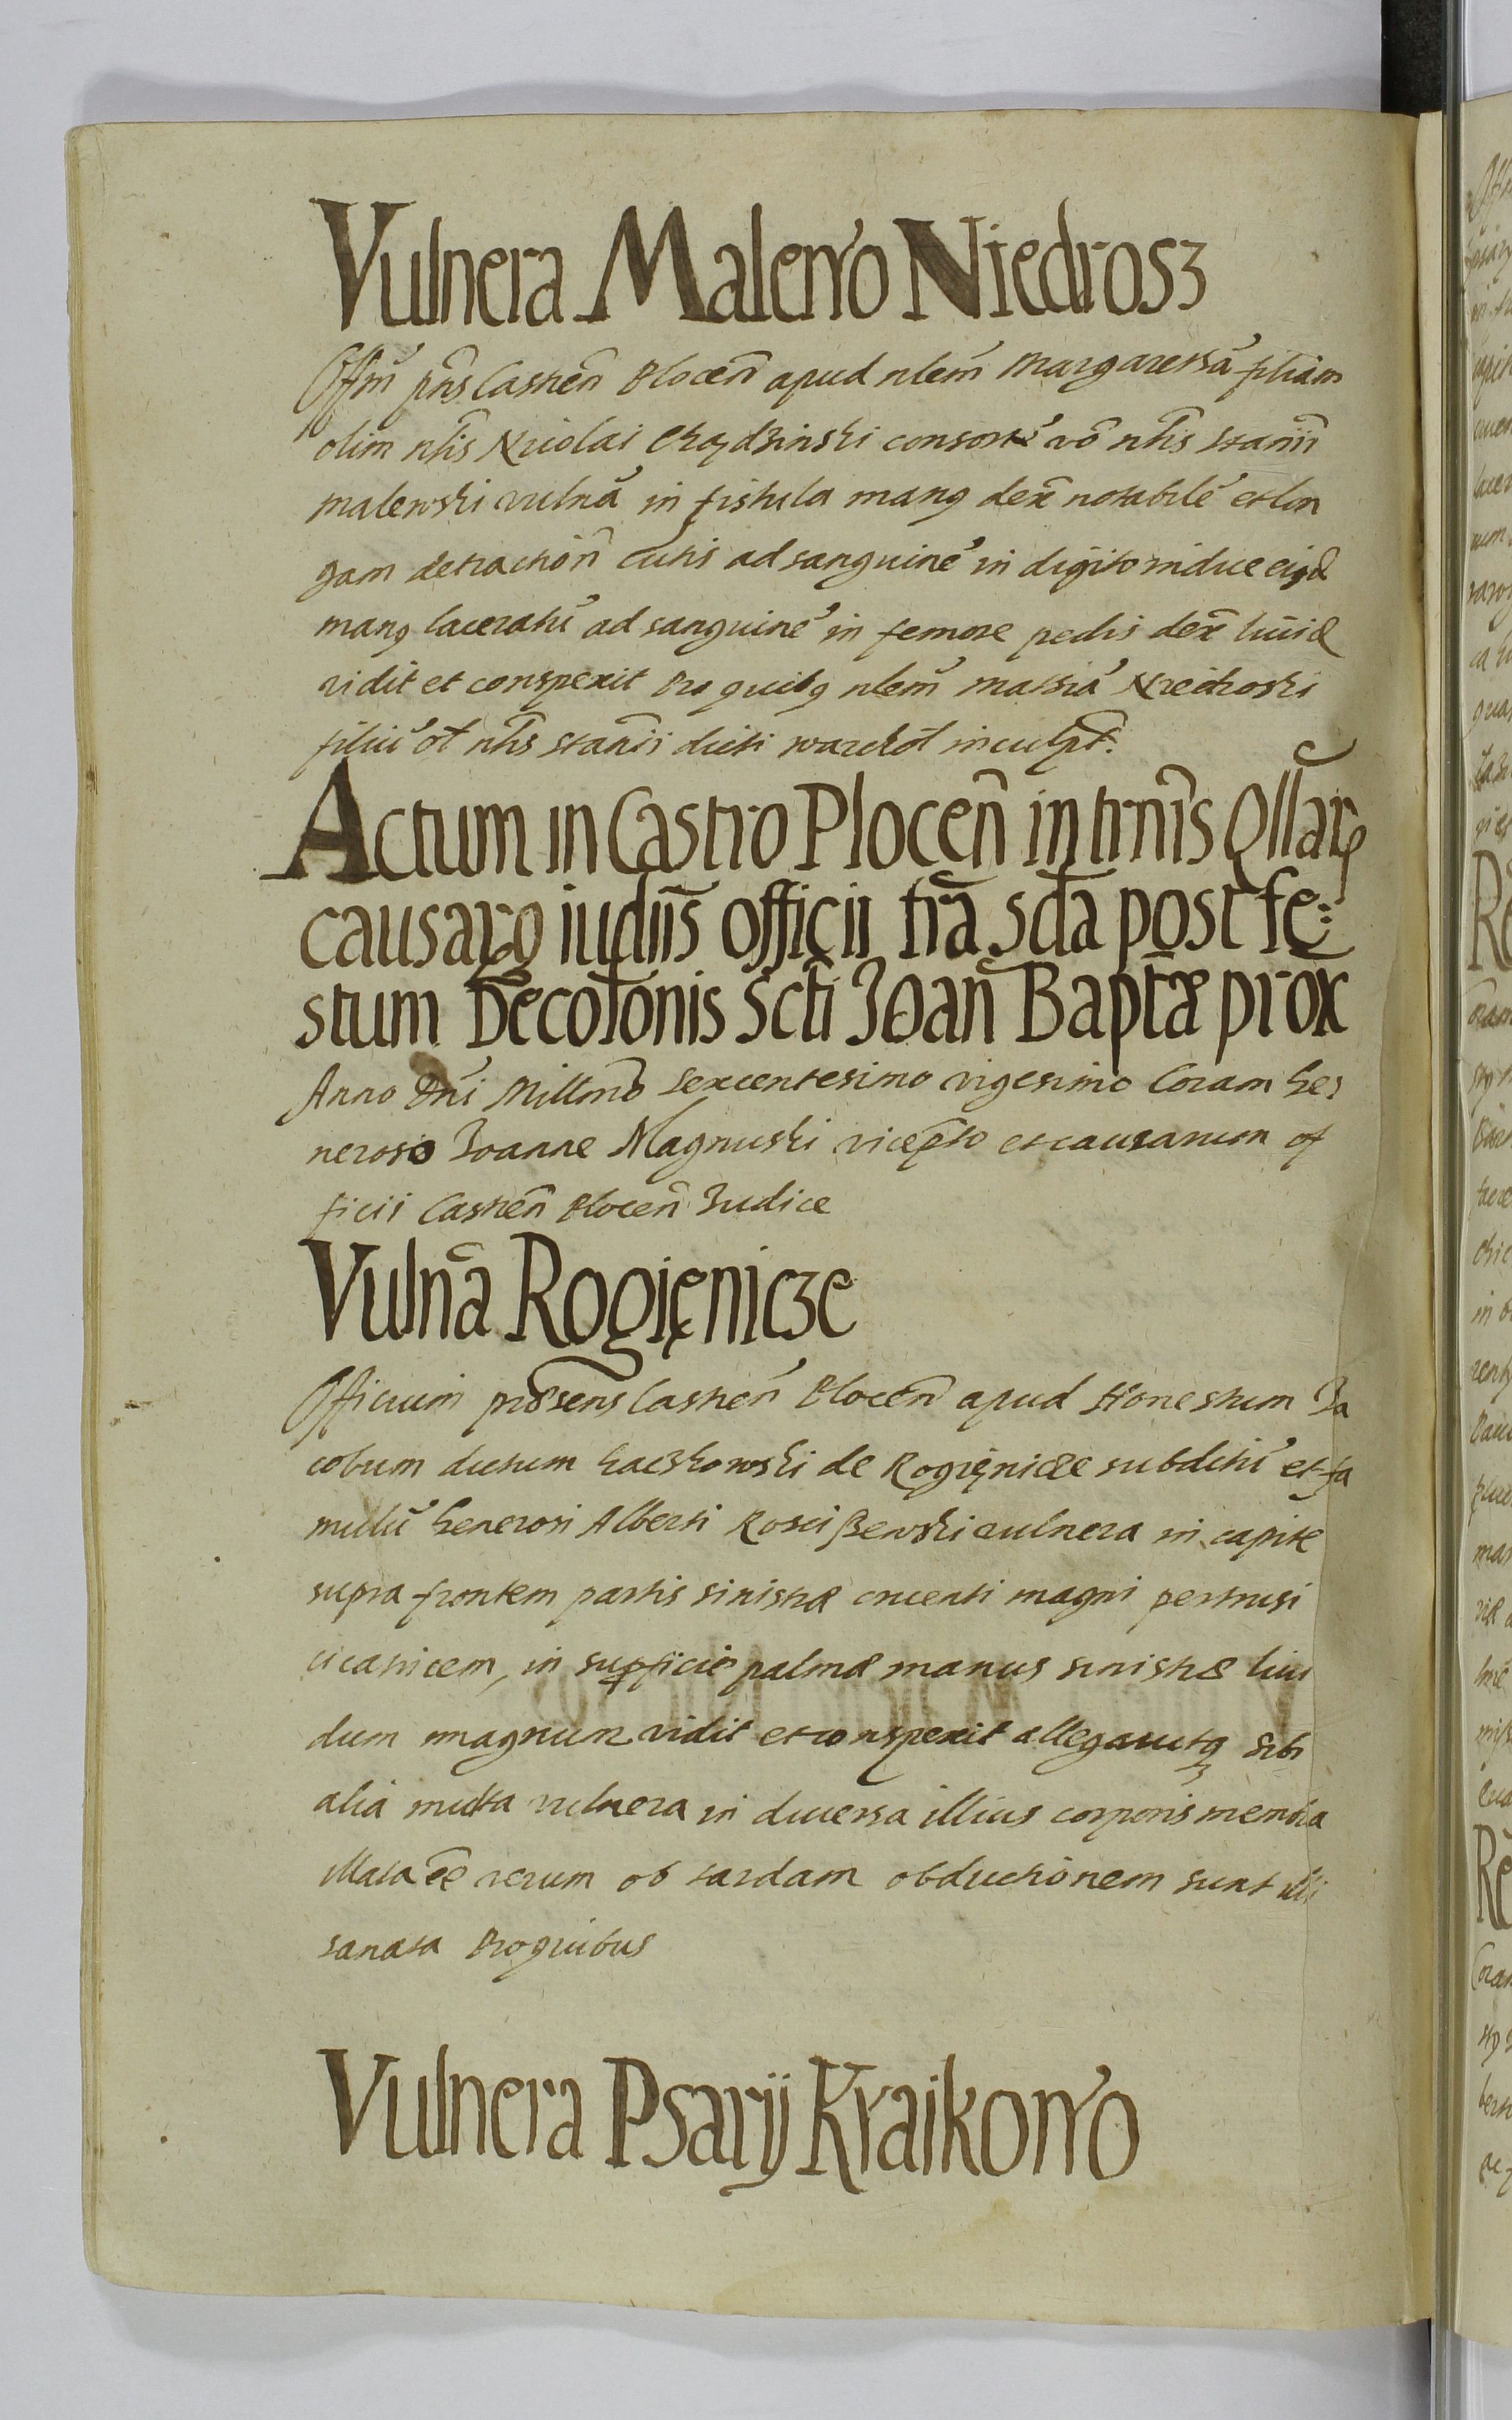 Vulnera Malewo Niedrosz
Offm̃ pñs Castreñ Plocen̄ apud nlem̃ Margaretã filiam
olim nłis Nicolai Chądzinski consortẽ võ nłis Stanii
Malewski vulnã in fistula manꝯ dex̃ notabilẽ et lon
gam detractioñ cutis ad sanguinẽ in digito indice eiꝯd
manꝯ laceratũ ad sanguinẽ in femore pedis dex̃ liuidũ
vidit et conspexit Pro quibꝯ nlem̃ Mathiã Niedroski
filiũ oł nłis Stanii dicti wardoł inculpt̃.
Actum in Castro Plocen̄ in trm̃is Qllãrꝝ
causarꝝ iudiis officii fr̃a sd̃a post fe:
stum Decołonis Sct̃i Joan̄ Bapt̃æ prox
Anno Dñi Millm̃o Sexcentesimo vigesimo Coram Ge
neroso Joanne Magnuski viceptõ et causarum of
ficii Castreñ Plocen̄ Judice
Vulnã Rogięnicze
Officium præsens Castreñ Plocen̄ apud Honestum Ja
cobum dictum Kaczkowski de Rogięnicze subditũ et fa
mulũ Generosi Alberti Rosciszewski vulnera in capite
supra frontem partis sinistræ cruenti magni pertrusi
cicatricem, in suꝑficie palmæ manus sinistræ liui
dum magnum vidit et conspexit allegauitꝗ Sibi
alia multa vulnera in diuersa illius corporis membra
illata ẽe verum ob tardam obductionem sunt illi
sanata Pro quibus
Vulnera Psarij Kraikowo